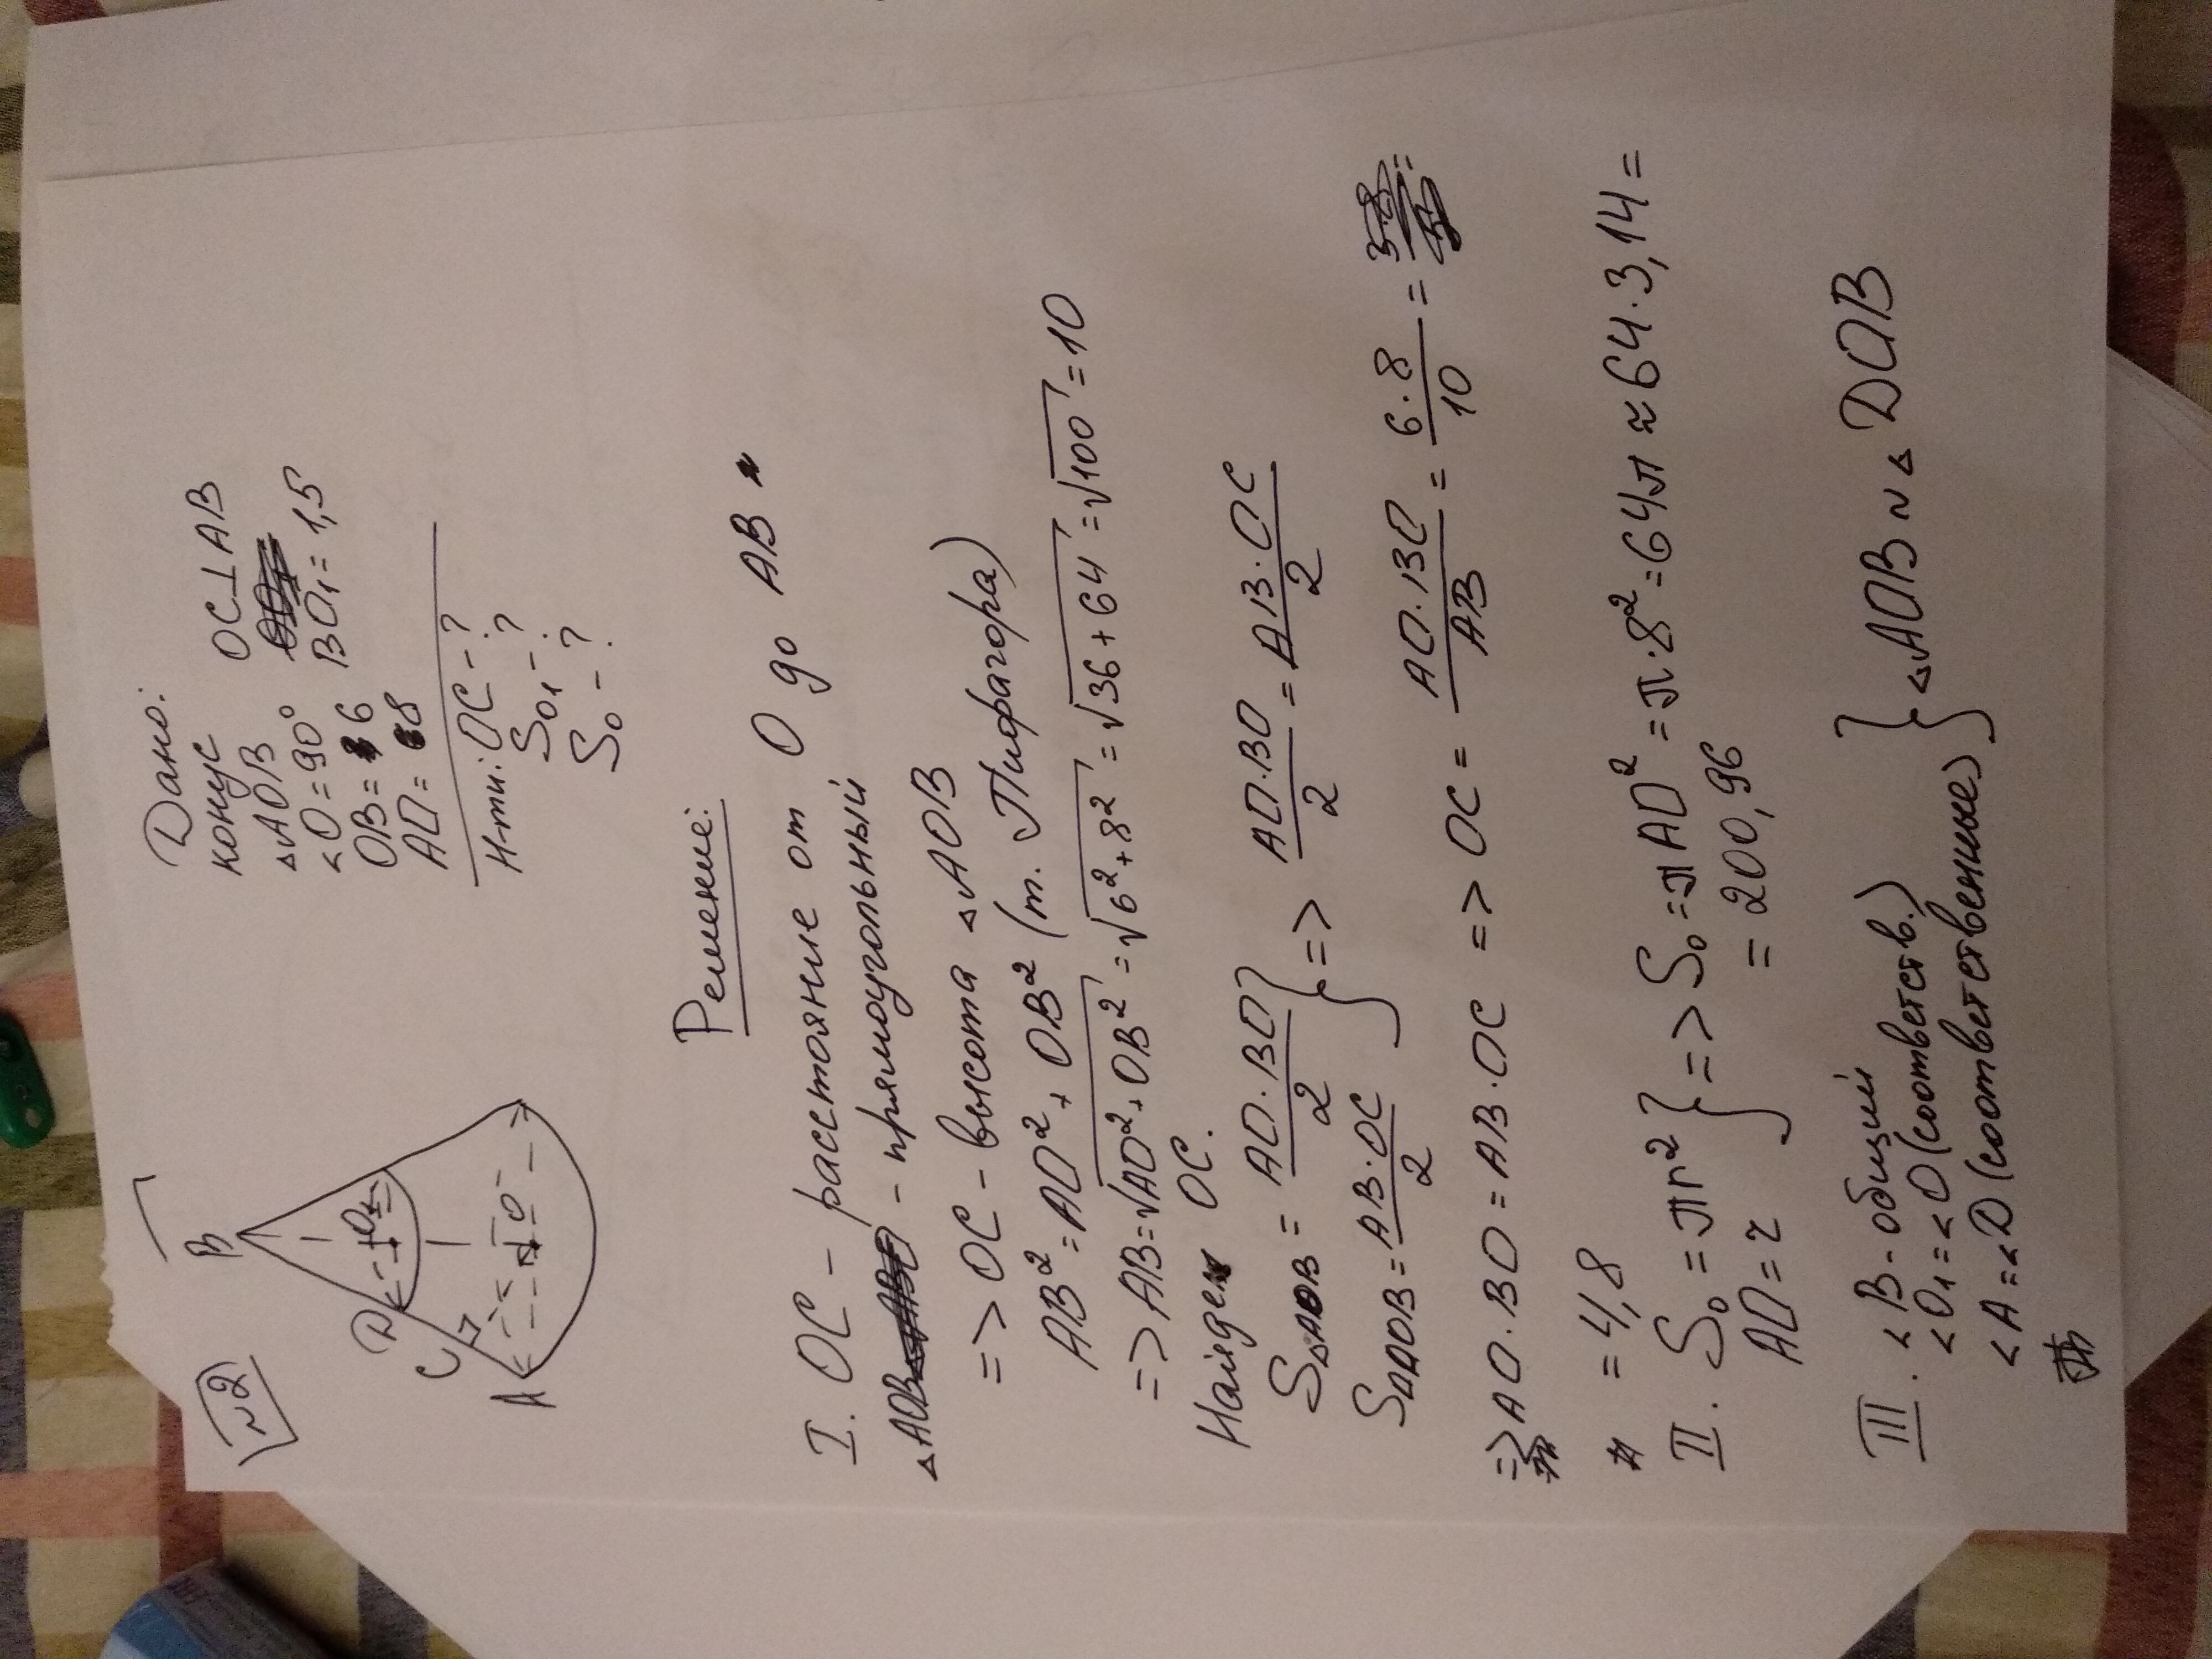 №2
B
D
O₁
C
A
O
Дано:
конус
△AOB
∠O=90°
OB=6
AO=8
OC⊥AB
BO₁=1,5
Н-ти: OC-?
S₀₁-?
S₀-?
Решение:
I. OC - расстояние от O до AB
△AOB - прямоугольный
=> OC - высота △AOB
AB²=AO²+OB² (т. Пифагора)
=> AB=√AO²+OB²=√6²+8²=√36+64=√100=10
Найдем OC.
S△AOB = AO·BO/2
S△AOB = AB·OC/2 } => AO·BO/2 = AB·OC/2
=> AO·BO=AB·OC => OC = AO·BO/AB = 6·8/10 =
=4,8
II. S₀=πr²
AO=r } => S₀=πAO²=π·8²=64π≈64·3,14=
=200,96
III. ∠B-общий
∠O₁=∠O (соответств.)
∠A=∠D (соответственные) } △AOB~△DOB